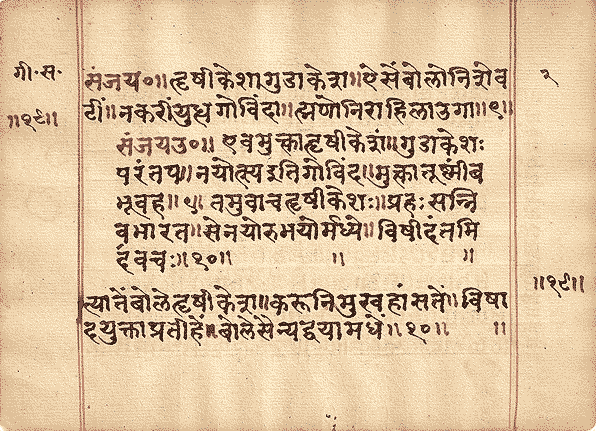 गी॰स॰
॥१९॥
संजय०॥हृषीकेशा गुडाकेश॥ऐसें बोलोनि शेव
टीं॥न करी युध्ध गोविंदा॥ह्मणोनि राहिला उगा॥९॥
संजयउ०॥ एवमुक्त्वा हृषीकेशं॥गुडाकेशः
परंतप॥नयोत्स्य इति गोविंद॥मुक्त्वा तूष्णीं ब
भूवह॥९॥तमुवाच हृषीकेशः॥प्रहसन्नि
व भारत॥सेनयोरुभयोर्मध्ये॥विषीदंतमि
दं वचः॥१०॥ ॥ ॥
त्यातें बोले हृषीकेश॥करूनि मुख हांसतें॥विषा
दयुक्ता प्रती हें॥बोले सैन्यद्वयामधें॥१०॥ ॥
२
॥१९॥